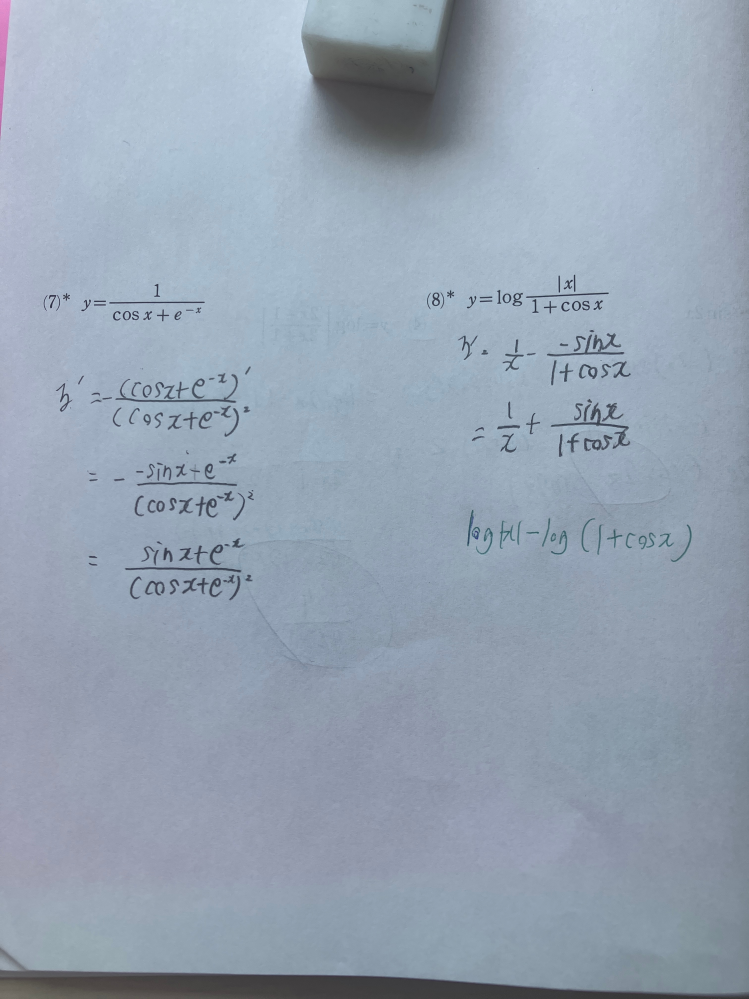 (7)* y = 1/(cos x + e^{-x})
y' = -(cosx+e^{-x})'/(cosx+e^{-x})²
= - (-sinx-e^{-x})/(cosx+e^{-x})²
= (sinx+e^{-x})/(cosx+e^{-x})²
(8)* y = log |x|/(1 + cos x)
y' = 1/x - (-sinx)/(1+cosx)
= 1/x + sinx/(1+cosx)
log|x|-log(1+cosx)